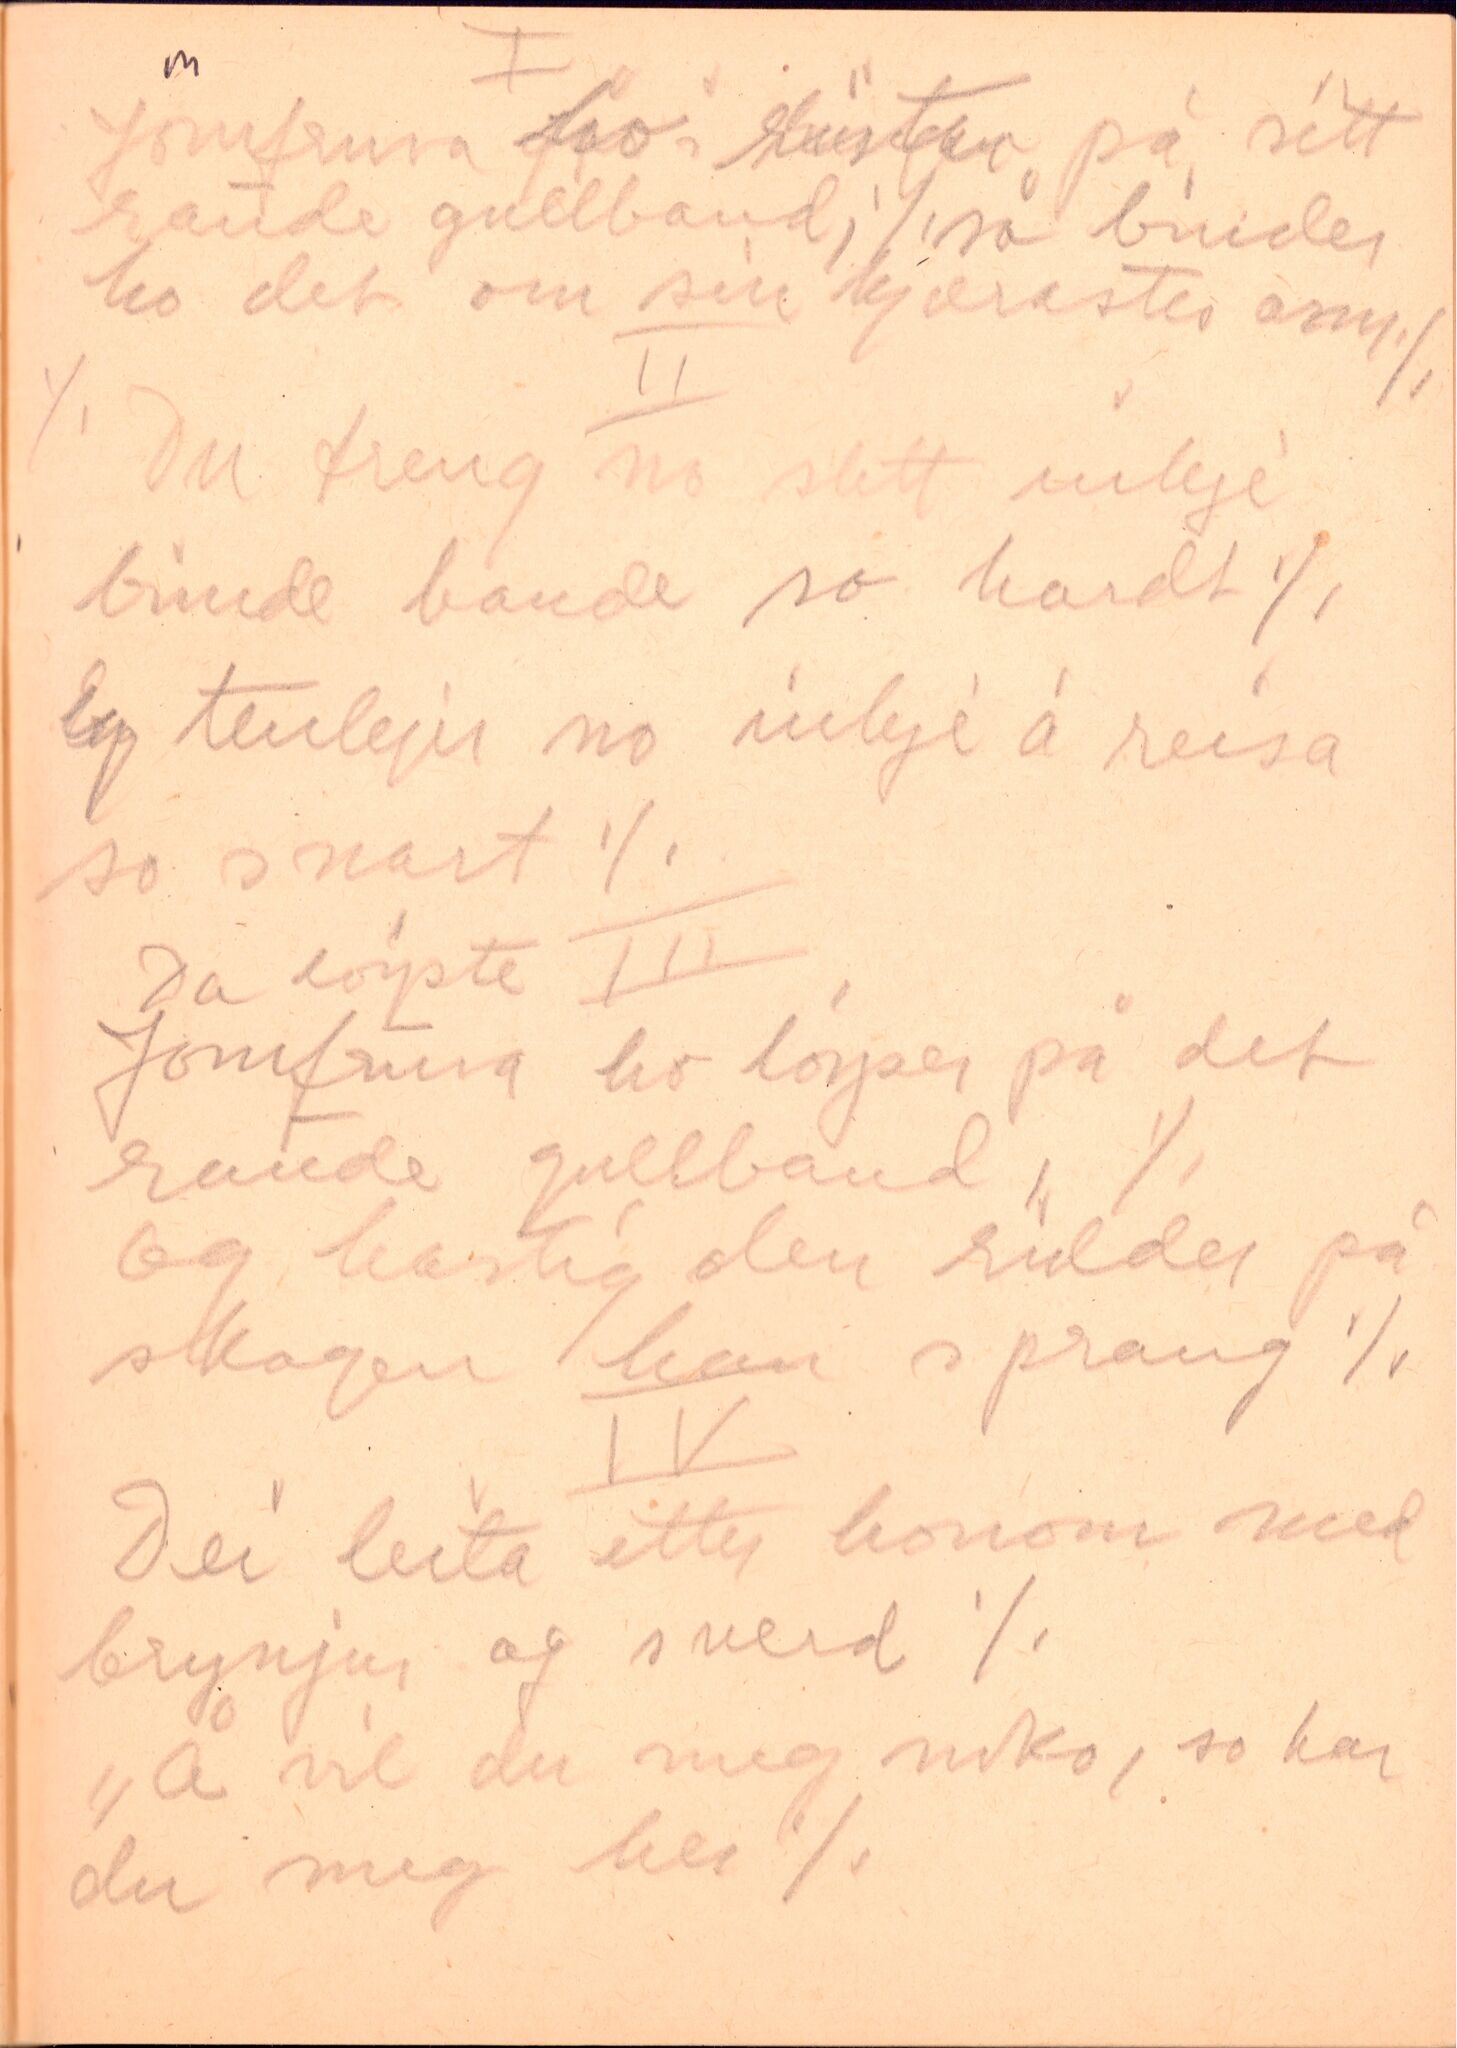 I
m
Jomfruva ho på sitt
raude gullband, ·/. så binder
ho det om sin kjærastes arm. ·/.
II
·/. Du treng no slett inkje
binde bande so hardt ·/.
Eg tenkjer no inkje å reisa
so snart ·/.
III
Da løyste
Jomfruva ho løyser på det
raude gullband, ·/.
og hastig den ridder på
skogen han sprang ·/.
IV
Dei leita etter honom med
brynjur og sverd ·/.
„Å vil du meg noko, so har
du meg her ·/.